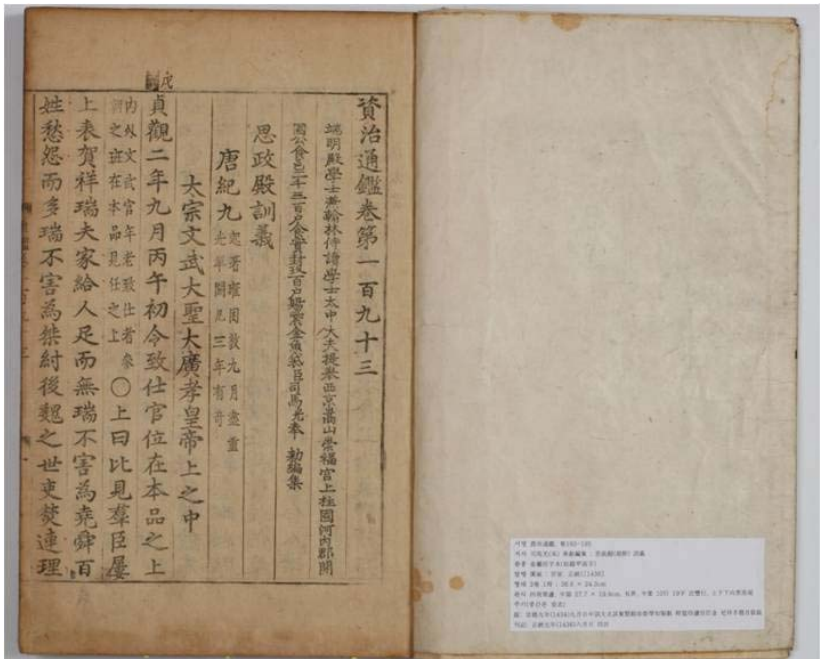 資治通鑑卷第一百九十三
端明殿學士兼翰林侍讀學士太中大夫提擧西京嵩山崇福宮上柱國河內郡開
國公食邑二千三百戶食實封玖百戶賜紫金魚袋臣司馬光奉 勅編集
思政殿訓義
唐紀九 起著雍困敦九月盡重
光單閼凡三年有奇
太宗文武大聖大廣孝皇帝上之中
貞觀二年九月丙午初令致仕官位在本品之上
內外文武官年老致仕者參
朝之班在本品見任之上 ○上曰比見羣臣屢
上表賀祥瑞夫家給人足而無瑞不害為堯舜百
姓愁怨而多瑞不害為桀紂後魏之世吏焚連理
서명 資治通鑑. 卷193-195
저자 司馬光(宋) 奉勅編集 ; 思政殿(朝鮮) 訓義
판종 金屬活字本(初鑄甲寅字)